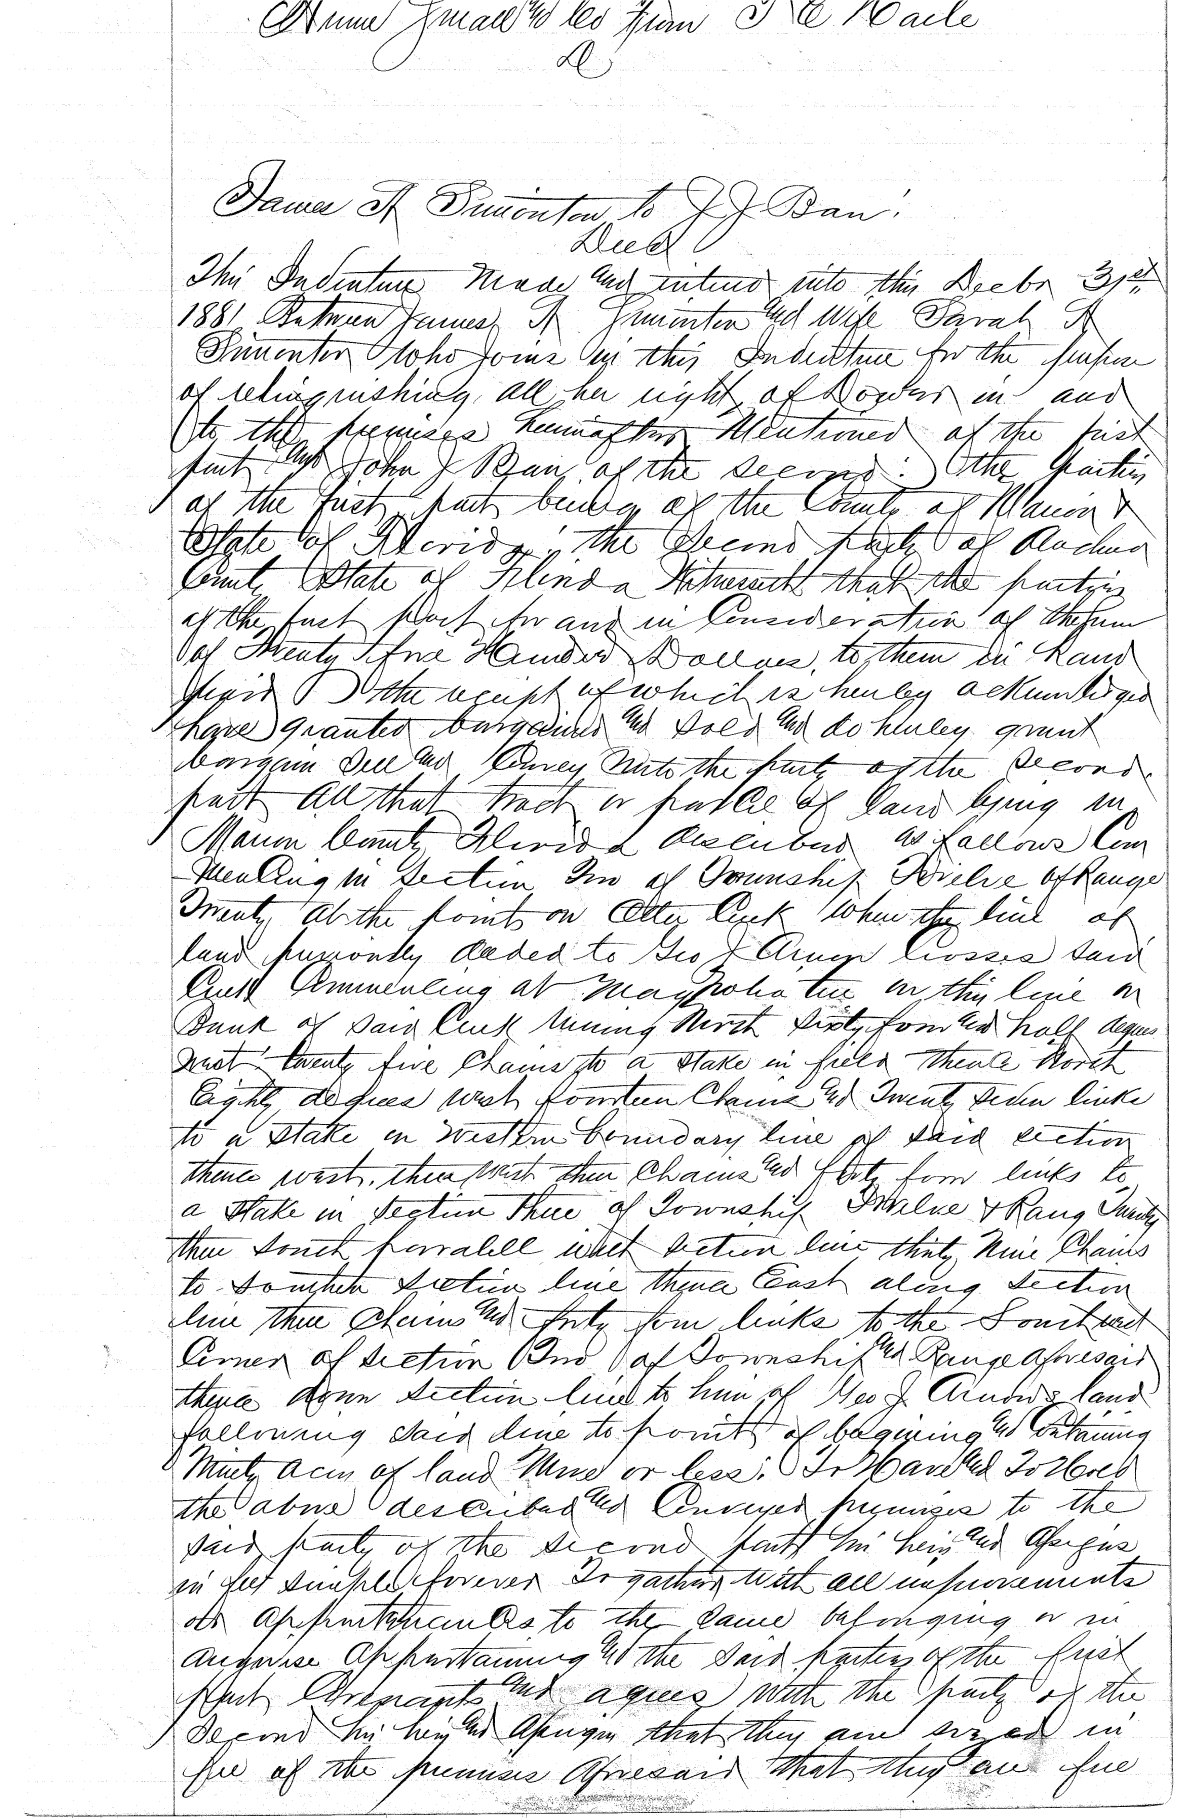 James A Simonton to J J Barr
Deed
This Indenture Made and entered into this Decbr 31st
1881 Between James A Simonton and wife Sarah A
Simonton Who Joins in this Indenture for the purpose
of relinquishing all her right of Dower in and
to the premises hereinafter Mentioned of the first
part and John J Barr of the second: the parties
of the first part being of the County of Marion &
State of Florida; the Second party of Alachua
County State of Florida Witnesseth that the parties
of the first part for and in Consideration of the sum
of Twenty five Hundred Dollars, to them in hand
paid the receipt of which is hereby acknowledged
have granted bargained and sold and do hereby grant
bargain sell and Convey unto the party of the second
part all that tract or parcel of land lying in
Marion County Florida described as follows Com
Mencing in Section Two of Township Twelve of Range
Twenty at the point on Creek When the line of
land previously deeded to Geo J Arnow Crosses said
Creek Commencing at tree on this line on
Bank of said Creek running North Sixty four and half degrees
west twenty five Chains to a stake in field thence North
Eighty degrees west fourteen Chains and Twenty seven links
to a stake on Western boundary line of said section
thence west, three Chains and forty four links to
a stake in Section Three of Township Twelve & Rang Twenty
thence South parralell with section line thirty Nine Chains
to Southern section line thence East along section
line three Chains and forty four links to the Southwest
Corner of section Two of Township and Range aforesaid
thence down section line to line of Geo J. Arnow's land
following said line to point of begining and Containing
Ninety acres of land More or less. To Have and To Hold
the above described and Conveyed premises to the
said party of the second part his heirs and Assigns
in fee simple forever Together with all improvements
or appurtenances to the same belonging or in
anywise Appurtaining and the said parties of the first
part Covenants and agrees with the party of the
second his heirs and Assigns that they are seized in
fee of the premises Aforesaid that they are free